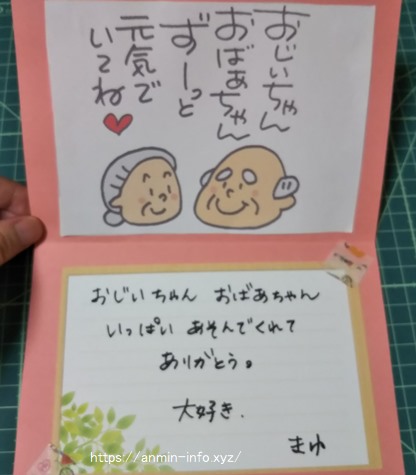 おじいちゃん
おばあちゃん
ずーっと
元気で
いてね
おじいちゃん おばあちゃん
いっぱい あそんでくれて
ありがとう。
大好き.
まゆ
https://anmin-info.xyz/